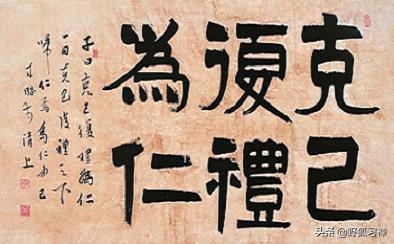 克己
復禮
為仁
子曰克己復禮為仁
一日克己復禮天下
歸仁焉為仁由己
头条 @野狐习禅